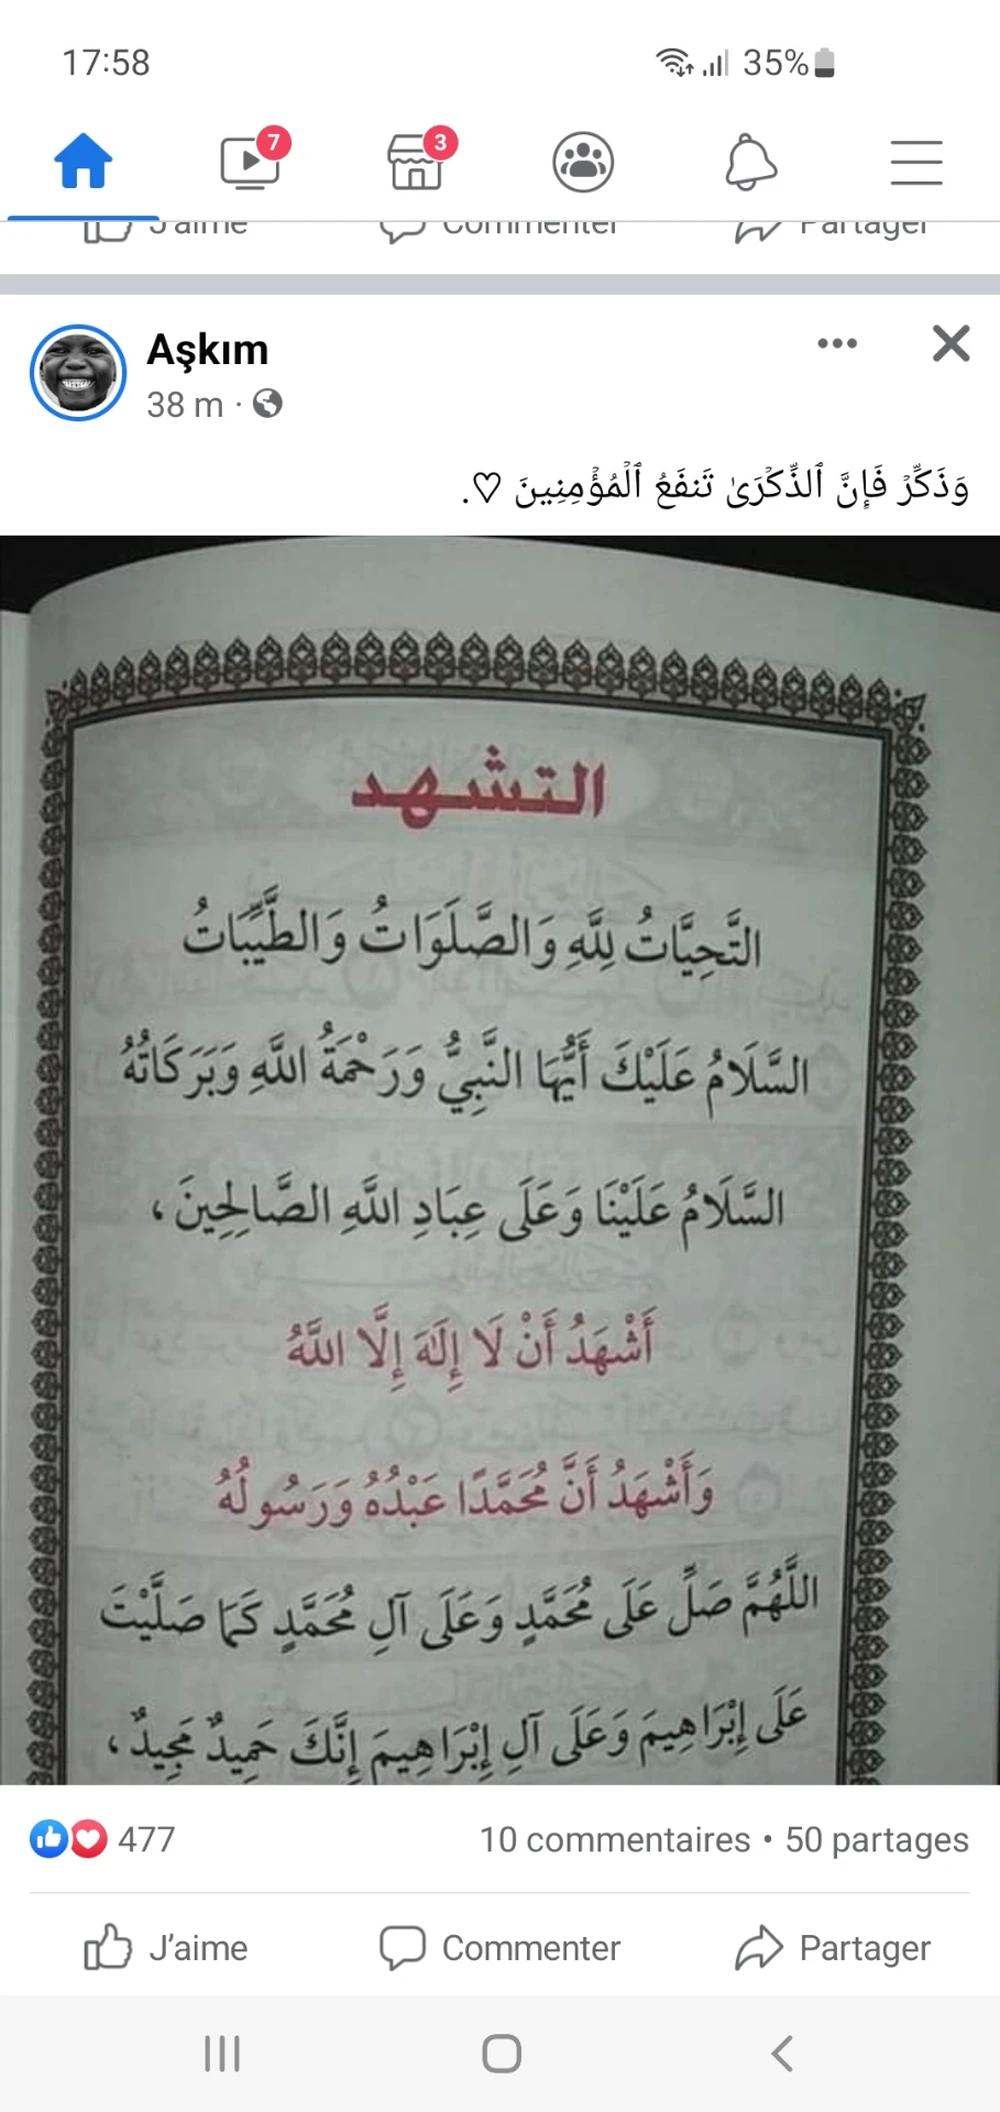 17:58 35%
7 3
J'aime Commenter Partager
Aşkım
38 m ·
وَذَكِّرْ فَإِنَّ ٱلذِّكْرَىٰ تَنفَعُ ٱلْمُؤْمِنِينَ ♡.
التشهد
التَّحِيَّاتُ لِلَّهِ وَالصَّلَوَاتُ وَالطَّيِّبَاتُ
السَّلَامُ عَلَيْكَ أَيُّهَا النَّبِيُّ وَرَحْمَةُ اللَّهِ وَبَرَكَاتُهُ
السَّلَامُ عَلَيْنَا وَعَلَى عِبَادِ اللَّهِ الصَّالِحِينَ،
أَشْهَدُ أَنْ لَا إِلَهَ إِلَّا اللَّهُ
وَأَشْهَدُ أَنَّ مُحَمَّدًا عَبْدُهُ وَرَسُولُهُ
اللَّهُمَّ صَلِّ عَلَى مُحَمَّدٍ وَعَلَى آلِ مُحَمَّدٍ كَمَا صَلَّيْتَ
عَلَى إِبْرَاهِيمَ وَعَلَى آلِ إِبْرَاهِيمَ إِنَّكَ حَمِيدٌ مَجِيدٌ،
477 10 commentaires • 50 partages
J'aime Commenter Partager